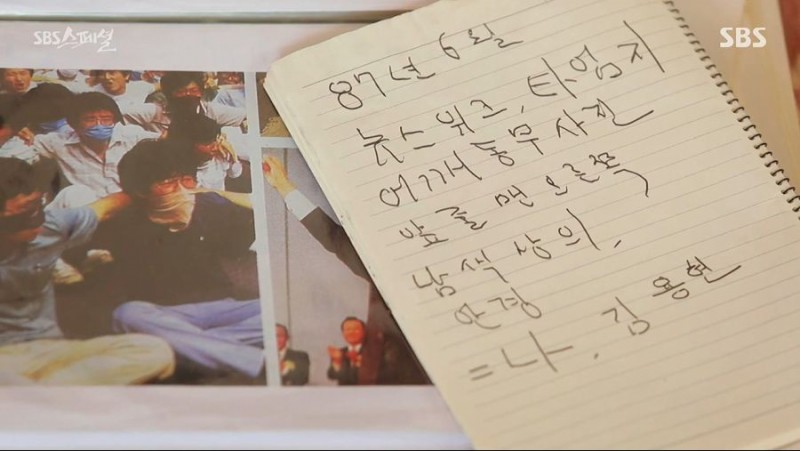 SBS 스페셜
SBS
87년 6월
뉴스위크, 타임지
어깨동무 사진
앞줄 맨 오른쪽
남색 상의,
안경
= 나. 김용현